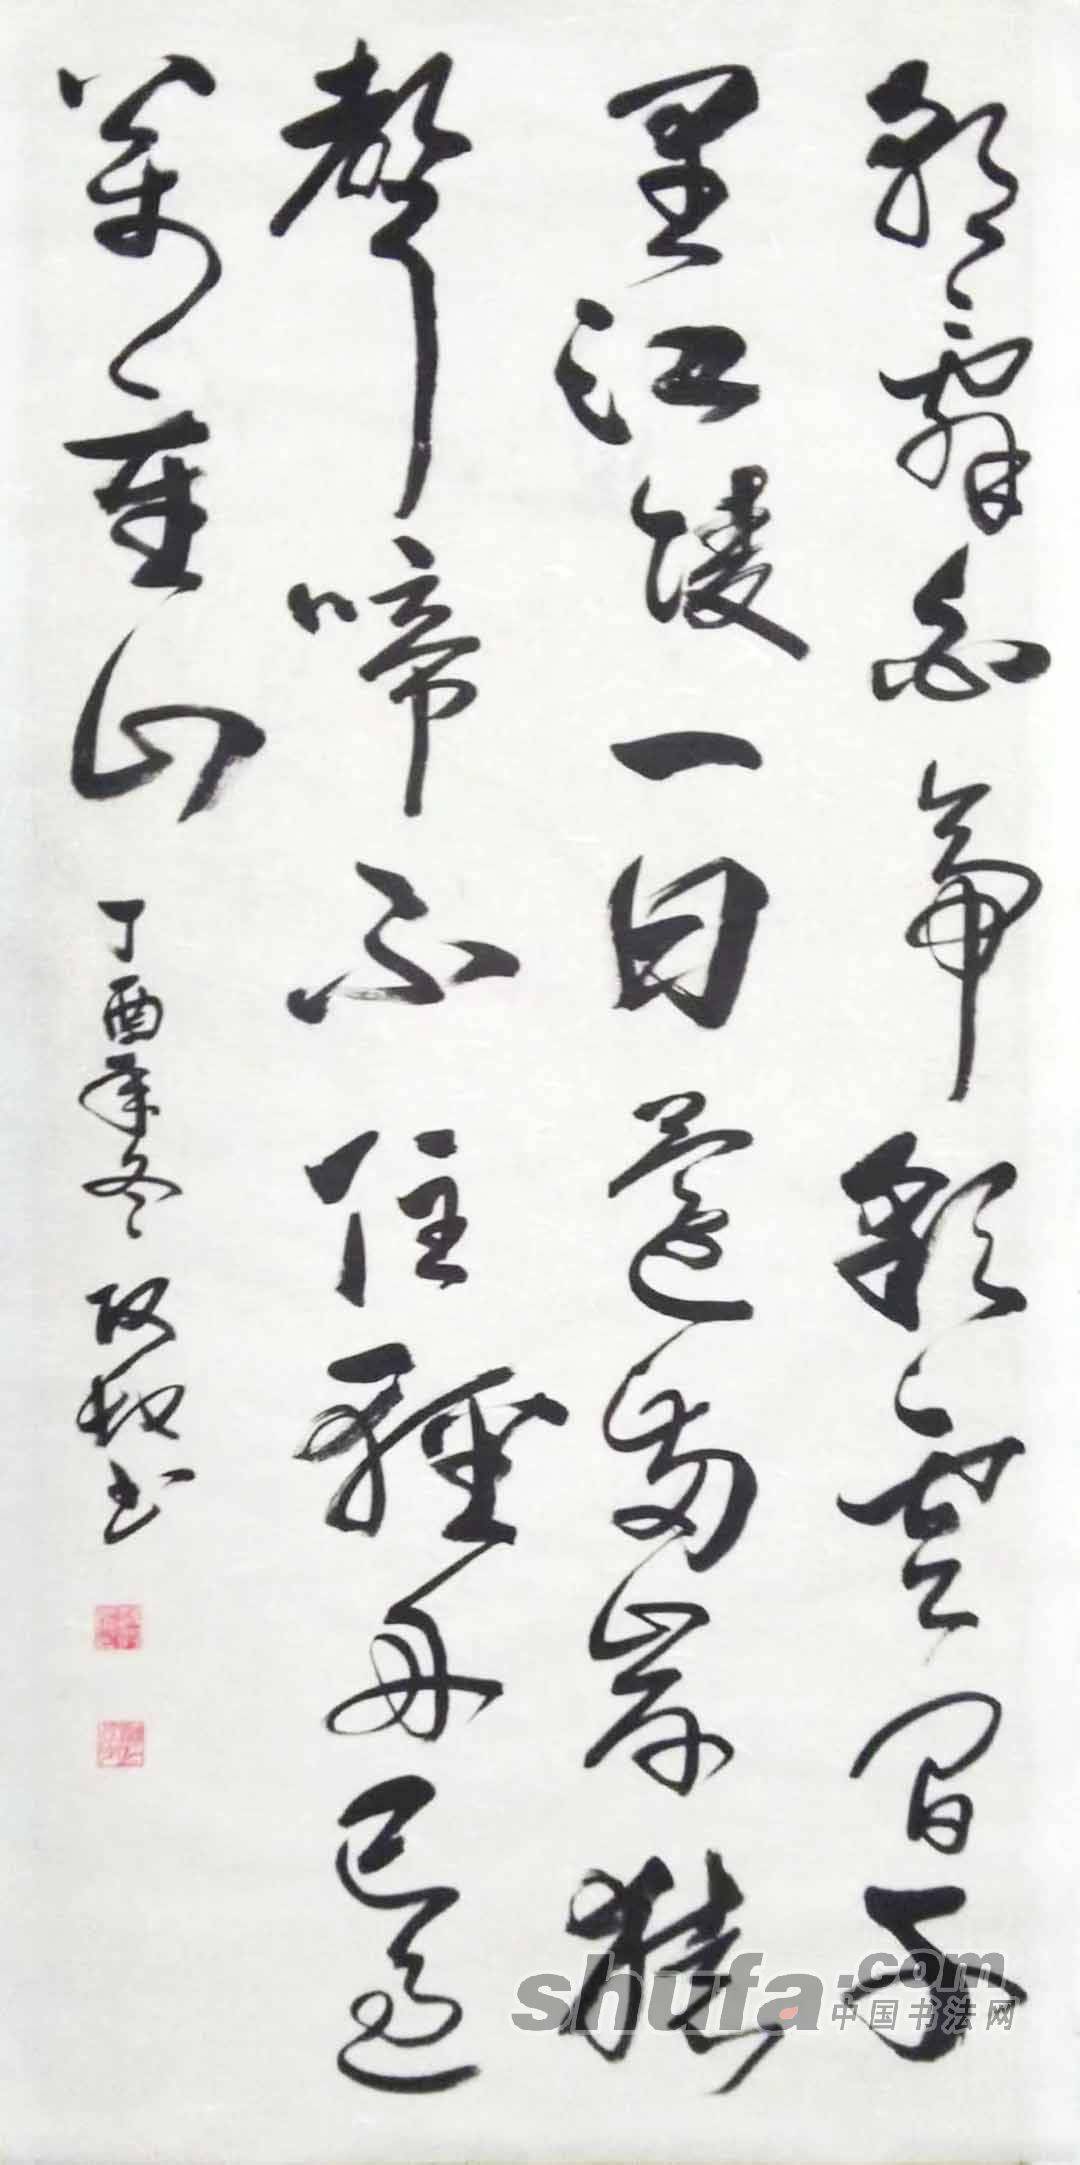 朝辭白帝彩雲間千
里江陵一日還兩岸猿
聲啼不住輕舟已過
萬重山
丁酉年冬 书
shufa.com
中国书法网